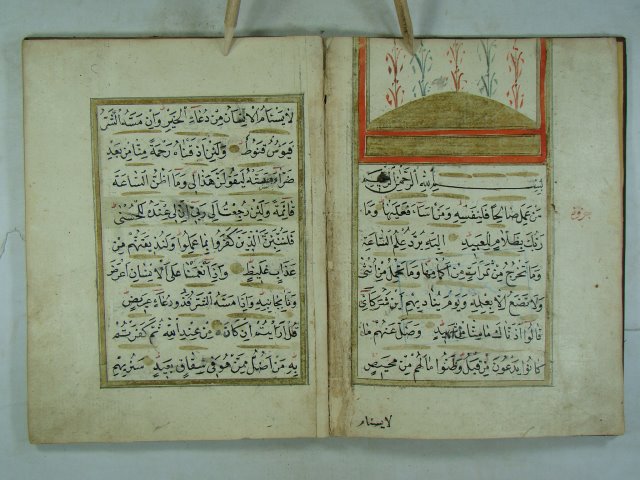 بسم الله الرحمن الرحيم
مَنْ عَمِلَ صَالِحًا فَلِنَفْسِهِ وَمَنْ اَسَاءَ فَعَلَيْهَا وَمَا
رَبُّكَ بِظَلَّامٍ لِلْعَبِيدِ اِلَيْهِ يُرَدُّ عِلْمُ السَّاعَةِ
وَمَا تَخْرُجُ مِنْ ثَمَرَاتٍ مِنْ اَكْمَامِهَا وَمَا تَحْمِلُ مِنْ اُنْثٰى
وَلَا تَضَعُ اِلَّا بِعِلْمِهِ وَيَوْمَ يُنَادِيهِمْ اَيْنَ شُرَكَائِي
قَالُوا اٰذَنَّاكَ مَا مِنَّا مِنْ شَهِيدٍ وَضَلَّ عَنْهُمْ مَا
كَانُوا يَدْعُونَ مِنْ قَبْلُ وَظَنُّوا مَا لَهُمْ مِنْ مَحِيصٍ
لا يسئام
لَا يَسْئَامُ الْاِنْسَانُ مِنْ دُعَاءِ الْخَيْرِ وَاِنْ مَسَّهُ الشَّرُّ
فَيَؤُسٌ قَنُوطٌ وَلَئِنْ اَذَقْنَاهُ رَحْمَةً مِنَّا مِنْ بَعْدِ
ضَرَّاءَ مَسَّتْهُ لَيَقُولَنَّ هٰذَا لِي وَمَا اَظُنُّ السَّاعَةَ
قَائِمَةً وَلَئِنْ رُجِعْتُ اِلٰى رَبِّي اِنَّ لِي عِنْدَهُ لَلْحُسْنٰى
فَلَنُنَبِّئَنَّ الَّذِينَ كَفَرُوا بِمَا عَمِلُوا وَلَنُذِيقَنَّهُمْ مِنْ
عَذَابٍ غَلِيظٍ وَاِذَا اَنْعَمْنَا عَلَى الْاِنْسَانِ اَعْرَضَ
وَنَاٰ بِجَانِبِهِ وَاِذَا مَسَّهُ الشَّرُّ فَذُو دُعَاءٍ عَرِيضٍ
قُلْ اَرَاَيْتُمْ اِنْ كَانَ مِنْ عِنْدِ اللّٰهِ ثُمَّ كَفَرْتُمْ
بِهِ مَنْ اَضَلُّ مِمَّنْ هُوَ فِي شِقَاقٍ بَعِيدٍ سَنُرِيهِمْ